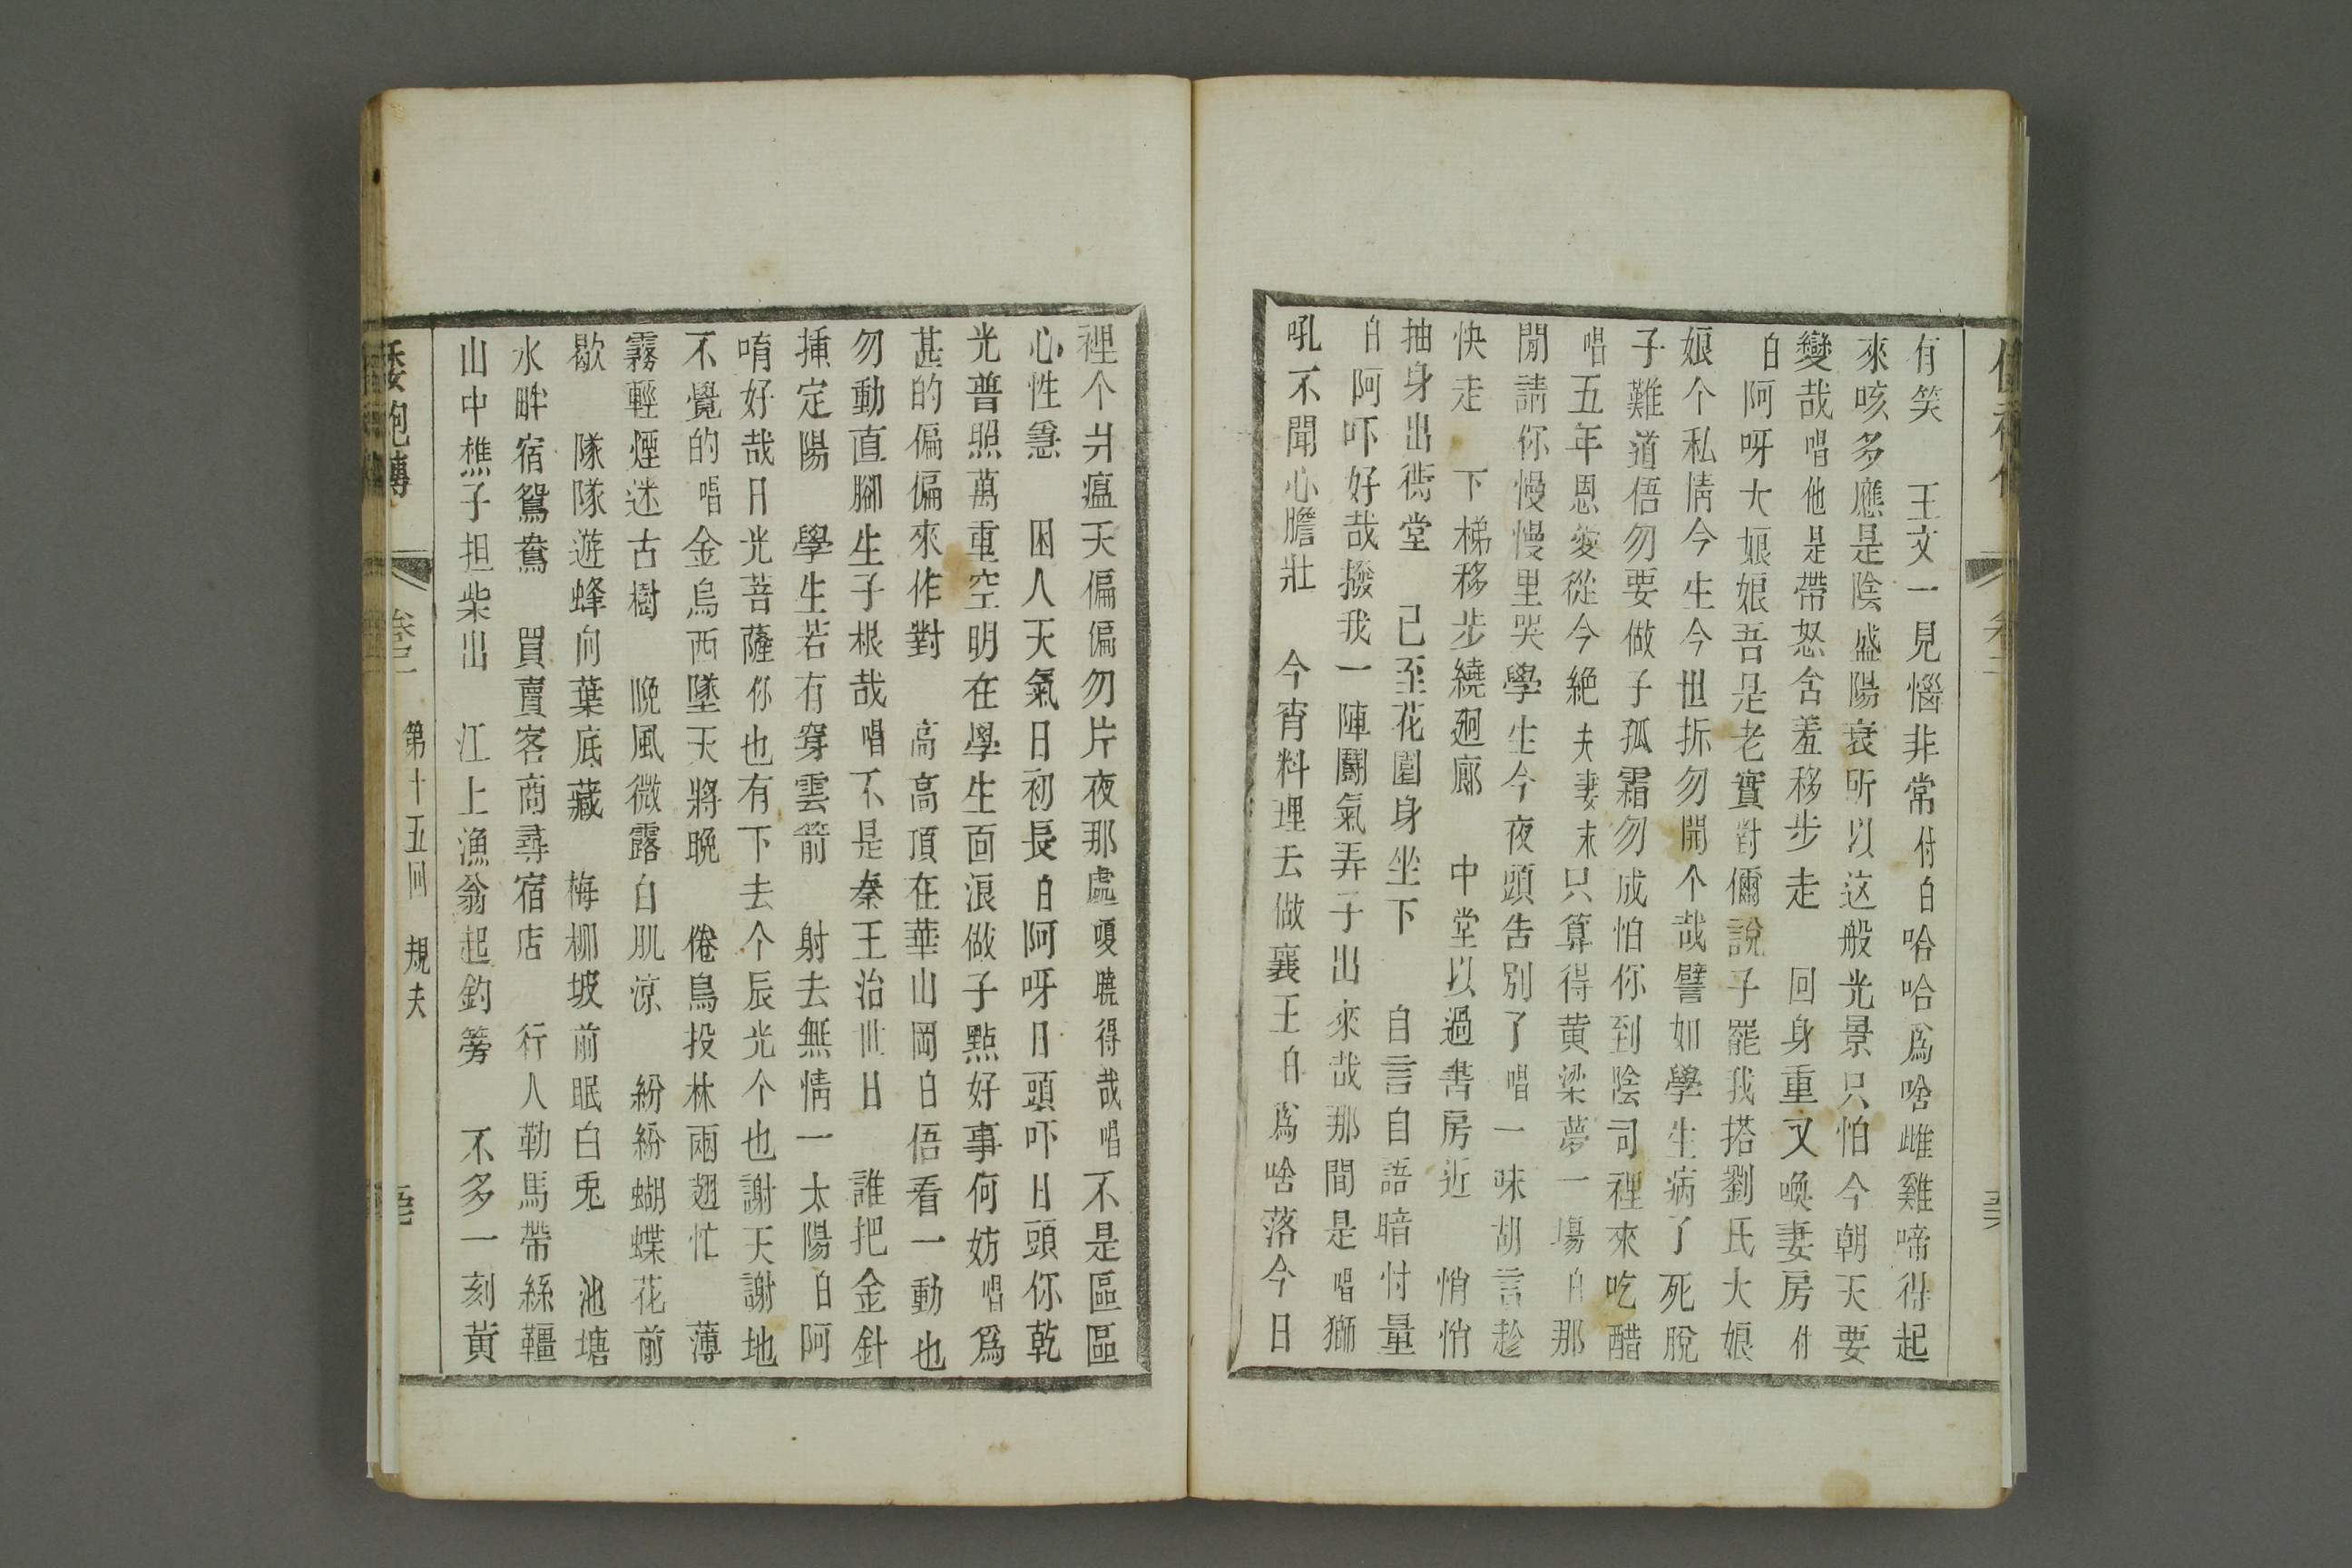 有笑　王文一見惱非常付白哈哈為啥雌雞啼得起
來咳多應是陰盛陽衰所以这般光景只怕今朝天要
變哉唱他是帶怒含羞移步走　回身重又喚妻房付
白阿呀大娘娘吾是老實對儞說子罷我搭劉氏大娘
娘个私情今生今世拆勿開个哉譬如學生病了死脫
子難道俉勿要做子孤霜勿成怕你到陰司裡來吃醋
唱五年恩愛從今絕夫妻末只算得黃梁夢一塲白那
閒請你慢慢里哭學生今夜頭告別了唱一味胡言趁
快走　下梯移步繞廻廊　中堂以過書房近　悄悄
抽身出衖堂　己至花園身坐下　自言自語暗忖量
白阿吓好哉撥我一陣鬭氣弄子出來哉那間是唱獅
吼不聞心膽壯　今宵料理去做襄王白為啥落今日
裡个廾瘟天偏偏勿片夜那處嗄曉得哉唱不是區區
心性急　困人天氣日初長白阿呀日頭吓日頭你乾
光普照萬重空明在學生面浪做子點好事何妨唱為
甚的偏偏來作對　高高頂在華山岡白俉看一動也
勿動直腳生子根哉唱不是秦王治世日　誰把金針
揷定陽　學生若有穿雲箭　射去無情一太陽白阿
唷好哉日光菩薩你也有下去个辰光个也謝天謝地
不覺的唱金烏西墜天將晚　倦鳥投林兩翅忙　薄
霧輕煙迷古樹　晚風微露白肌涼　紛紛蝴蝶花前
歇　隊隊遊蜂向葉底藏　梅柳坡前眠白兎　池塘
水畔宿鴛鴦　買賣客商尋宿店　行人勒馬帶絲韁
山中樵子担柴出　江上漁翁起釣篣　不多一刻黃
倭袍傳　卷三　第十五回　規夫